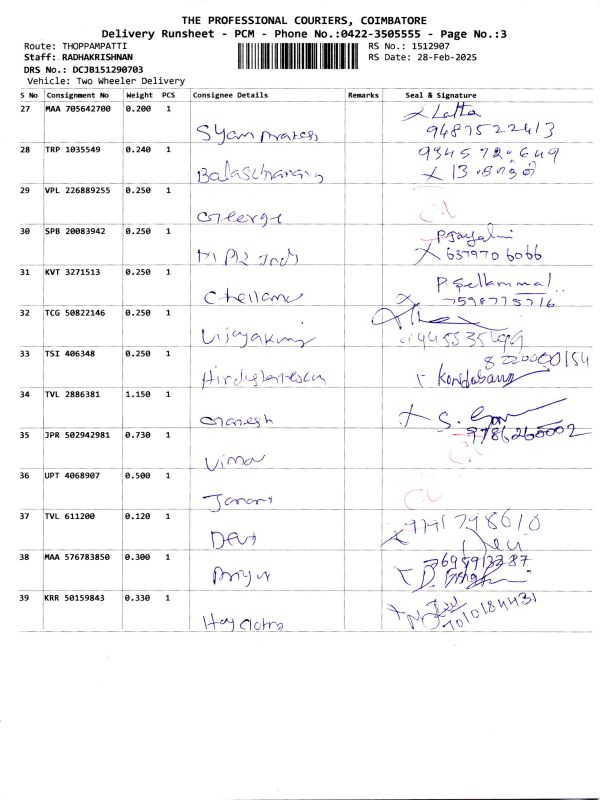 THE PROFESSIONAL COURIERS, COIMBATORE
Delivery Runsheet - PCM - Phone No.:0422-3505555 - Page No.:3
Route: THOPPAMPATTI RS No.: 1512907
Staff: RADHAKRISHNAN RS Date: 28-Feb-2025
DRS No.: DCJB151290703
Vehicle: Two Wheeler Delivery
S No Consignment No Weight PCS Consignee Details Remarks Seal & Signature
27 MAA 705642700 0.200 1 Latha
9487522413
28 TRP 1035549 0.240 1
29 VPL 226889255 0.250 1
George
30 SPB 20083942 0.250 1 P.Jayalni
6379706066
31 KVT 3271513 0.250 1 P. Sellammal
7598775716
32 TCG 50822146 0.250 1
Vijayakumar
33 TSI 406348 0.250 1 8220080154
34 TVL 2886381 1.150 1
Ganesh 9786260002
35 JPR 502942981 0.730 1
Vimal
36 UPT 4068907 0.500 1
Janani
37 TVL 611200 0.120 1 9791798610
Devi
38 MAA 576783850 0.300 1
Priya
39 KRR 50159843 0.330 1 7010184431